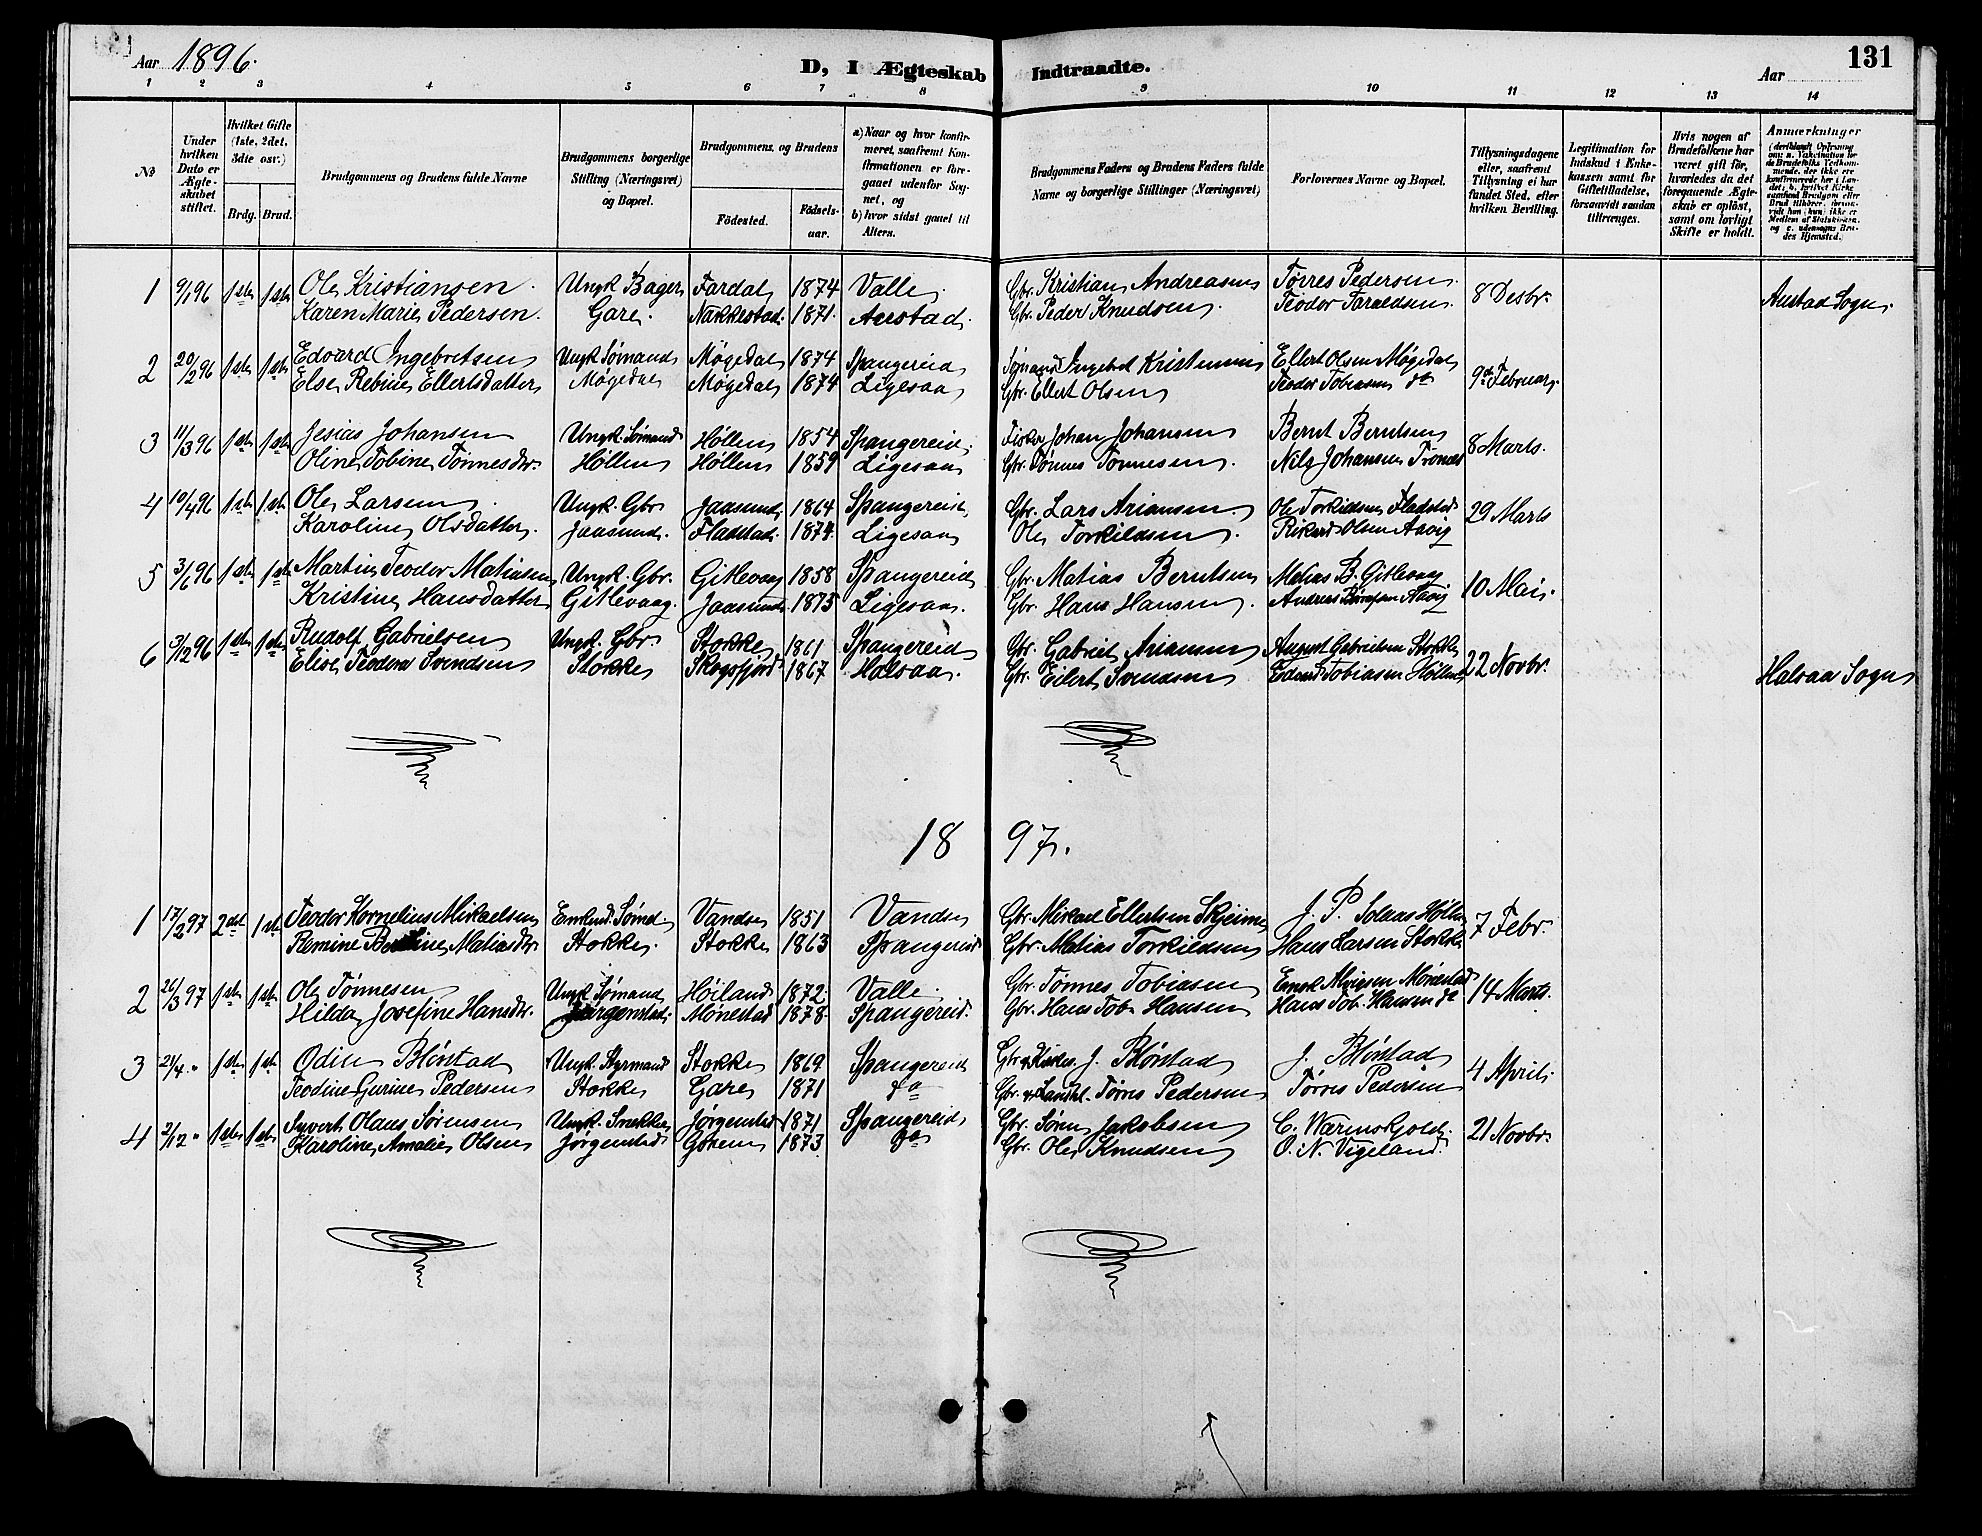 Aar 1896.
D, I Ægteskab Indtraadte.
131
Aar
1 2 3 4 5 6 7 8 9 10 11 12 13 14
No
Under hvilken Dato er Ægteskabet stiftet.
Hvilket Gifte (1ste, 2det, 3die osv.)
Brdg. Brud.
Brudgommens og Brudens fulde Navne
Brudgommens borgerlige Stilling (Næringsvei) og Bopæl.
Brudgommens og Brudens
Födested.
Födselsaar.
a) Naar og hvor konfirmeret, saafremt Konfirmationen er foregaaet udenfor Sognet, og
b) hvor sidst gaaet til Alters.
Brudgommens Faders og Brudens Faders fulde Navne og borgerlige Stillinger (Næringsvei)
Forlovernes Navne og Bopæl.
Tillysningsdagene eller, saafremt Tillysning ei har fundet Sted, efter hvilken Bevilling.
Legitimation for Indskud i Enkekassen samt for Giftetilladelse, forsaavidt saadan tiltrænges.
Hvis nogen af Brudefolkene har været gift för, hvorledes da det foregaaende Ægteskab er oplöst, samt om lovligt Skifte er holdt.
Anmærkninger
1 9/1 96 1ste 1ste Ole Kristiansen. Ungk Bager Fardal 1874 Valle. Gbr. Kristian Andreasen Tørres Pedersen. 8 Desbr.
Karen Marie Pedersen. Gare. Nakkestad. 1871. Austad. Gbr. Peder Knudsen. Teodor Taraldsen. Austad Sogn.
2 20/2 96 1ste 1ste Edvard Ingebretsen Ungk Sømand Møgedal 1874 Spangereid Sømand Ingebret Kristensen Ellert Olsen Møgedal 9de Februar.
Else Rebine Ellertsdatter Møgedal Møgedal 1874 Ligesaa Gbr. Ellert Olsen Teodor Tobiasen do
3 11/3 96 1ste 1ste Jesias Johansen Ungk. Sømand Høllen 1854 Spangereid. Fisker Johan Johansen Bernt Berntsen 8 Marts.
Oline Tobine Tønnesdtr. Høllen Høllen 1859 Ligesaa Gbr. Tønnes Tønnesen. Nils Johansen
4 10/4 96 1ste 1ste Ole Larsen. Ungk. Gbr Jaasund 1864 Spangereid Gbr. Lars Ariansen. Ole Torkildsen Fladstad 29 Marts
Karoline Olsdatter. Jaasund. Fladstad. 1874. Ligesaa Ole Torkildsen. Rikard Olsen Aavig
5 3/6 96 1ste 1ste Martin Teodor Matiasen Ungk. Gbr. Gitlevaag 1858 Spangereid Gbr. Matias Berntsen Matias B. Gitlevaag 10 Mai.
Kristine Hansdatter Gitlevaag. Jaasund. 1875 Ligesaa. Gbr. Hans Hansen. Andreas Aavig
6 3/12 96 1ste 1ste Rudolf Gabrielsen Ungk. Gbr. Stokke 1861 Spangereid Gbr. Gabriel Ariansen August Gabrielsen Stokke 22 Novbr.
Elise Teodora Svendsen Stokke Skogsfjord 1867 Halsaa. Gbr. Eilert Svendsen Edvard Tobiasen Høllen Halsaa Sogn
1897.
1 17/2 97 2det 1ste Teodor Kornelius Mikaelsen Enkmd. Sømd. Vandsø 1851 Vandsø Gbr. Mikael Ellertsen Skjeime J. P. Solaas Høllen 7 Febr.
Remine Matiasdtr. Stokke. Stokke 1863 Spangereid Gbr. Matias Torkildsen Hans Larsen Stokke
2 26/3 97 1ste 1ste Ole Tønnesen Ungk Sømand Høiland 1872. Valle. Gbr. Tønnes Tobiasen Mønestad 14 Marts.
Hilda Josefine Hansdtr. Jørgenstad. Mønestad 1878. Spangereid. Gbr. Hans Tob. Hansen Hans Tob. Hansen do
3 21/4 " 1ste 1ste Odin Blörstad Ungk. Styrmand Stokke 1869 Spangereid J. Blörstad J. Blörstad 4 April.
Teodine Gurine Pedersen Stokke Gare 1871 do Gbr. & Landhl. Tørres Pedersen Tørres Pedersen
4 2/12 " 1ste 1ste Syvert Olaus Sørensen Ungk. Snekker Jørgenstad 1871 Spangereid Gbr. Søren Jakobsen C. Warenskjold. 21 Novbr.
Karoline Amalie Olsen Jørgenstad Gahren 1873. do Gbr. Ole Knudsen O. N. Vigeland.